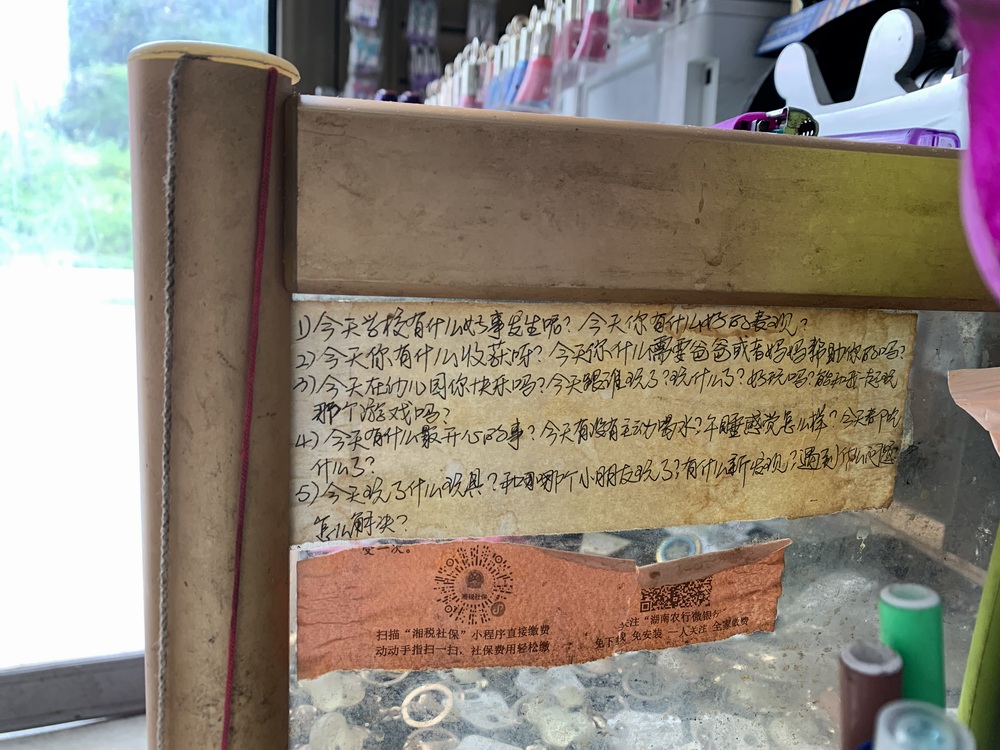 1)今天学校有什么好事发生呢?今天你有什么好的表现?
2)今天你有什么收获呀?今天你什么需要爸爸或者妈妈帮助你的吗?
3)今天在幼儿园你快乐吗?今天跟谁玩了?玩什么了?好玩吗?能和我一起玩
那个游戏吗?
4)今天有什么最开心的事?今天有没有主动喝水?午睡感觉怎么样?今天都吃
什么了?
5)今天玩了什么玩具?和哪个小朋友玩了?有什么新发现?遇到什么问题
怎么解决?
变一次。
湘税社保
扫描“湘税社保”小程序直接缴费
动动手指扫一扫,社保费用轻松缴
关注“湖南农行微银行
免下载 免安装 一人关注 全家缴费